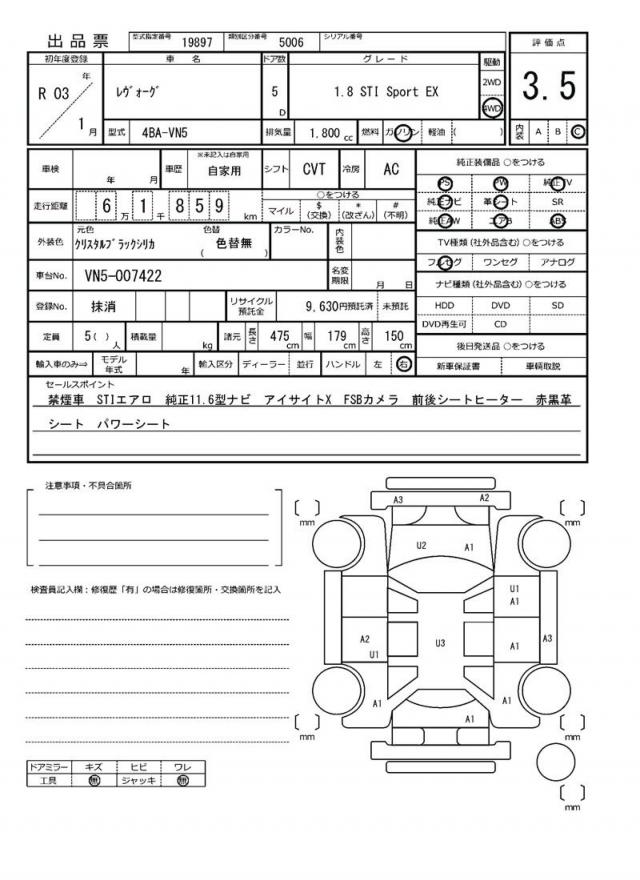 出品票 型式指定番号 19897 類別区分番号 5006 シリアル番号
評価点
3.5
内装 A B C
初年度登録 車名 ドア数 グレード 駆動
R 03 年 1 月
レヴォーグ 5 D 1.8 STI Sport EX 2WD 4WD
型式 4BA-VN5 排気量 1.800 cc 燃料 ガソリン 軽油 ( )
車検 年 月 車歴 ※未記入は自家用 自家用 シフト CVT 冷房 AC
走行距離 6 万 1 千 8 5 9 km
○をつける
マイル $ (交換) * (改ざん) # (不明)
外装色 元色 クリスタルブラックシリカ 色替 色替無 ( )
カラーNo. 内装色
車台No. VN5-007422 名変期限 月 日
登録No. 抹消 リサイクル預託金 9,630円預託済 未預託
定員 5 ( ) 人 積載量 kg 諸元 長さ 475 cm 幅 179 cm 高さ 150 cm
輸入車のみ⇒ モデル年式 年 輸入区分 ディーラー 並行 ハンドル 左 右
純正装備品 ○をつける
PS PW 純正TV
純正ナビ 革シート SR
純正AW エアB ABS
TV種類 (社外品含む) ○をつける
フルセグ ワンセグ アナログ
ナビ種類 (社外品含む) ○をつける
HDD DVD SD
DVD再生可 CD
後日発送品 ○をつける
新車保証書 車輌取説
セールスポイント
禁煙車 STIエアロ 純正11.6型ナビ アイサイトX FSBカメラ 前後シートヒーター 赤黒革
シート パワーシート
注意事項・不具合箇所
検査員記入欄：修復歴「有」の場合は修復箇所・交換箇所を記入
ドアミラー キズ ヒビ ワレ
工具 無 ジャッキ 無
A3 A2
[ ] mm [ ] mm
U2 A1
U1
A1
A2
U1
U3 A1 A3
A1 A1
A1
[ ] mm [ ] mm
[ ] mm